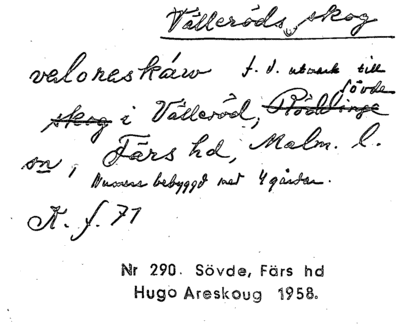 Välleröds skog
valöreskáw f. d. utmark till
skog i Välleröd, Röddinge Sövde
sn, Färs hd, Malm. l.
Numera bebyggd med 4 gårdar.
K. f. 71
Nr 290. Sövde, Färs hd
Hugo Areskoug 1958.